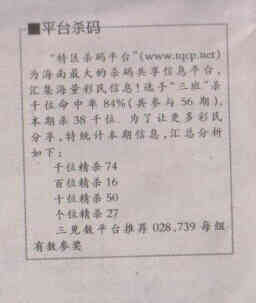 ■平台杀码
“特区杀码平台”(www.tqcp.net)
为海南最大的杀码共享信息平台，
汇集海量彩民信息！选手“三班”杀
千位命中率 84%(共参与 56 期)，
本期杀 38 千位。为了让更多彩民
分享，特统计本期信息，汇总分析
如下：
千位精杀 74
百位精杀 16
十位精杀 50
个位精杀 27
三见数平台推荐 028,739 每组
有数参奖